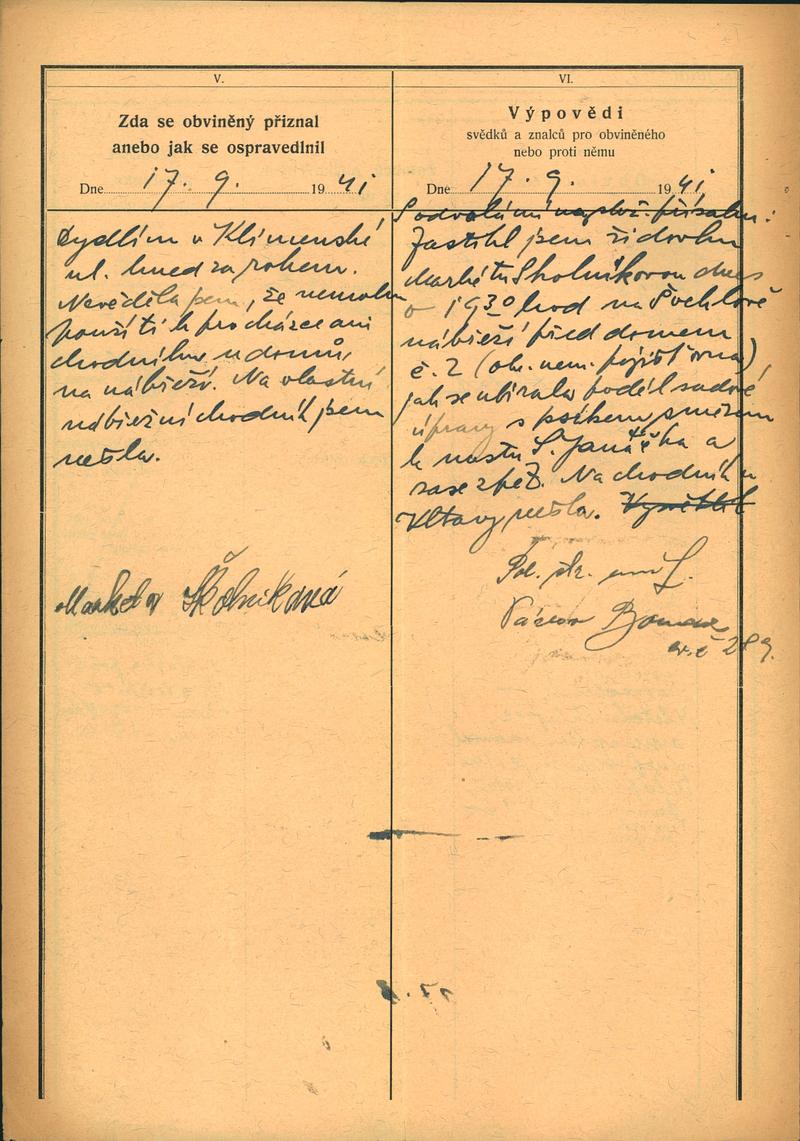 V.
Zda se obviněný přiznal
anebo jak se ospravedlnil
Dne 17. 9. 19 41
Bydlím v Klimenské
ul. hned za rohem.
Nevěděla jsem, že nemohu
použíti k procházce ani
chodníku u domů
na nábřeží. Na vlastní
nábřežní chodník jsem
nešla.
Markéta Školníková
VI.
Výpovědi
svědků a znalců pro obviněného
nebo proti němu
Dne 17. 9. 19 41
S odvoláním na služ. přísahu:
Zastihl jsem židovku
Markétu Školníkovou dnes
o 19 30 hod na Švehlově
nábřeží před domem
č. 2 (ok. nem. pojišťovna),
jak se ubírala podél sadové
úpravy s psíkem směrem
k mostu Š. Janáčka a
zase zpět. Na chodník u
Vltavy nešla. Vysvětlil
Pol. str.
Václav
289.